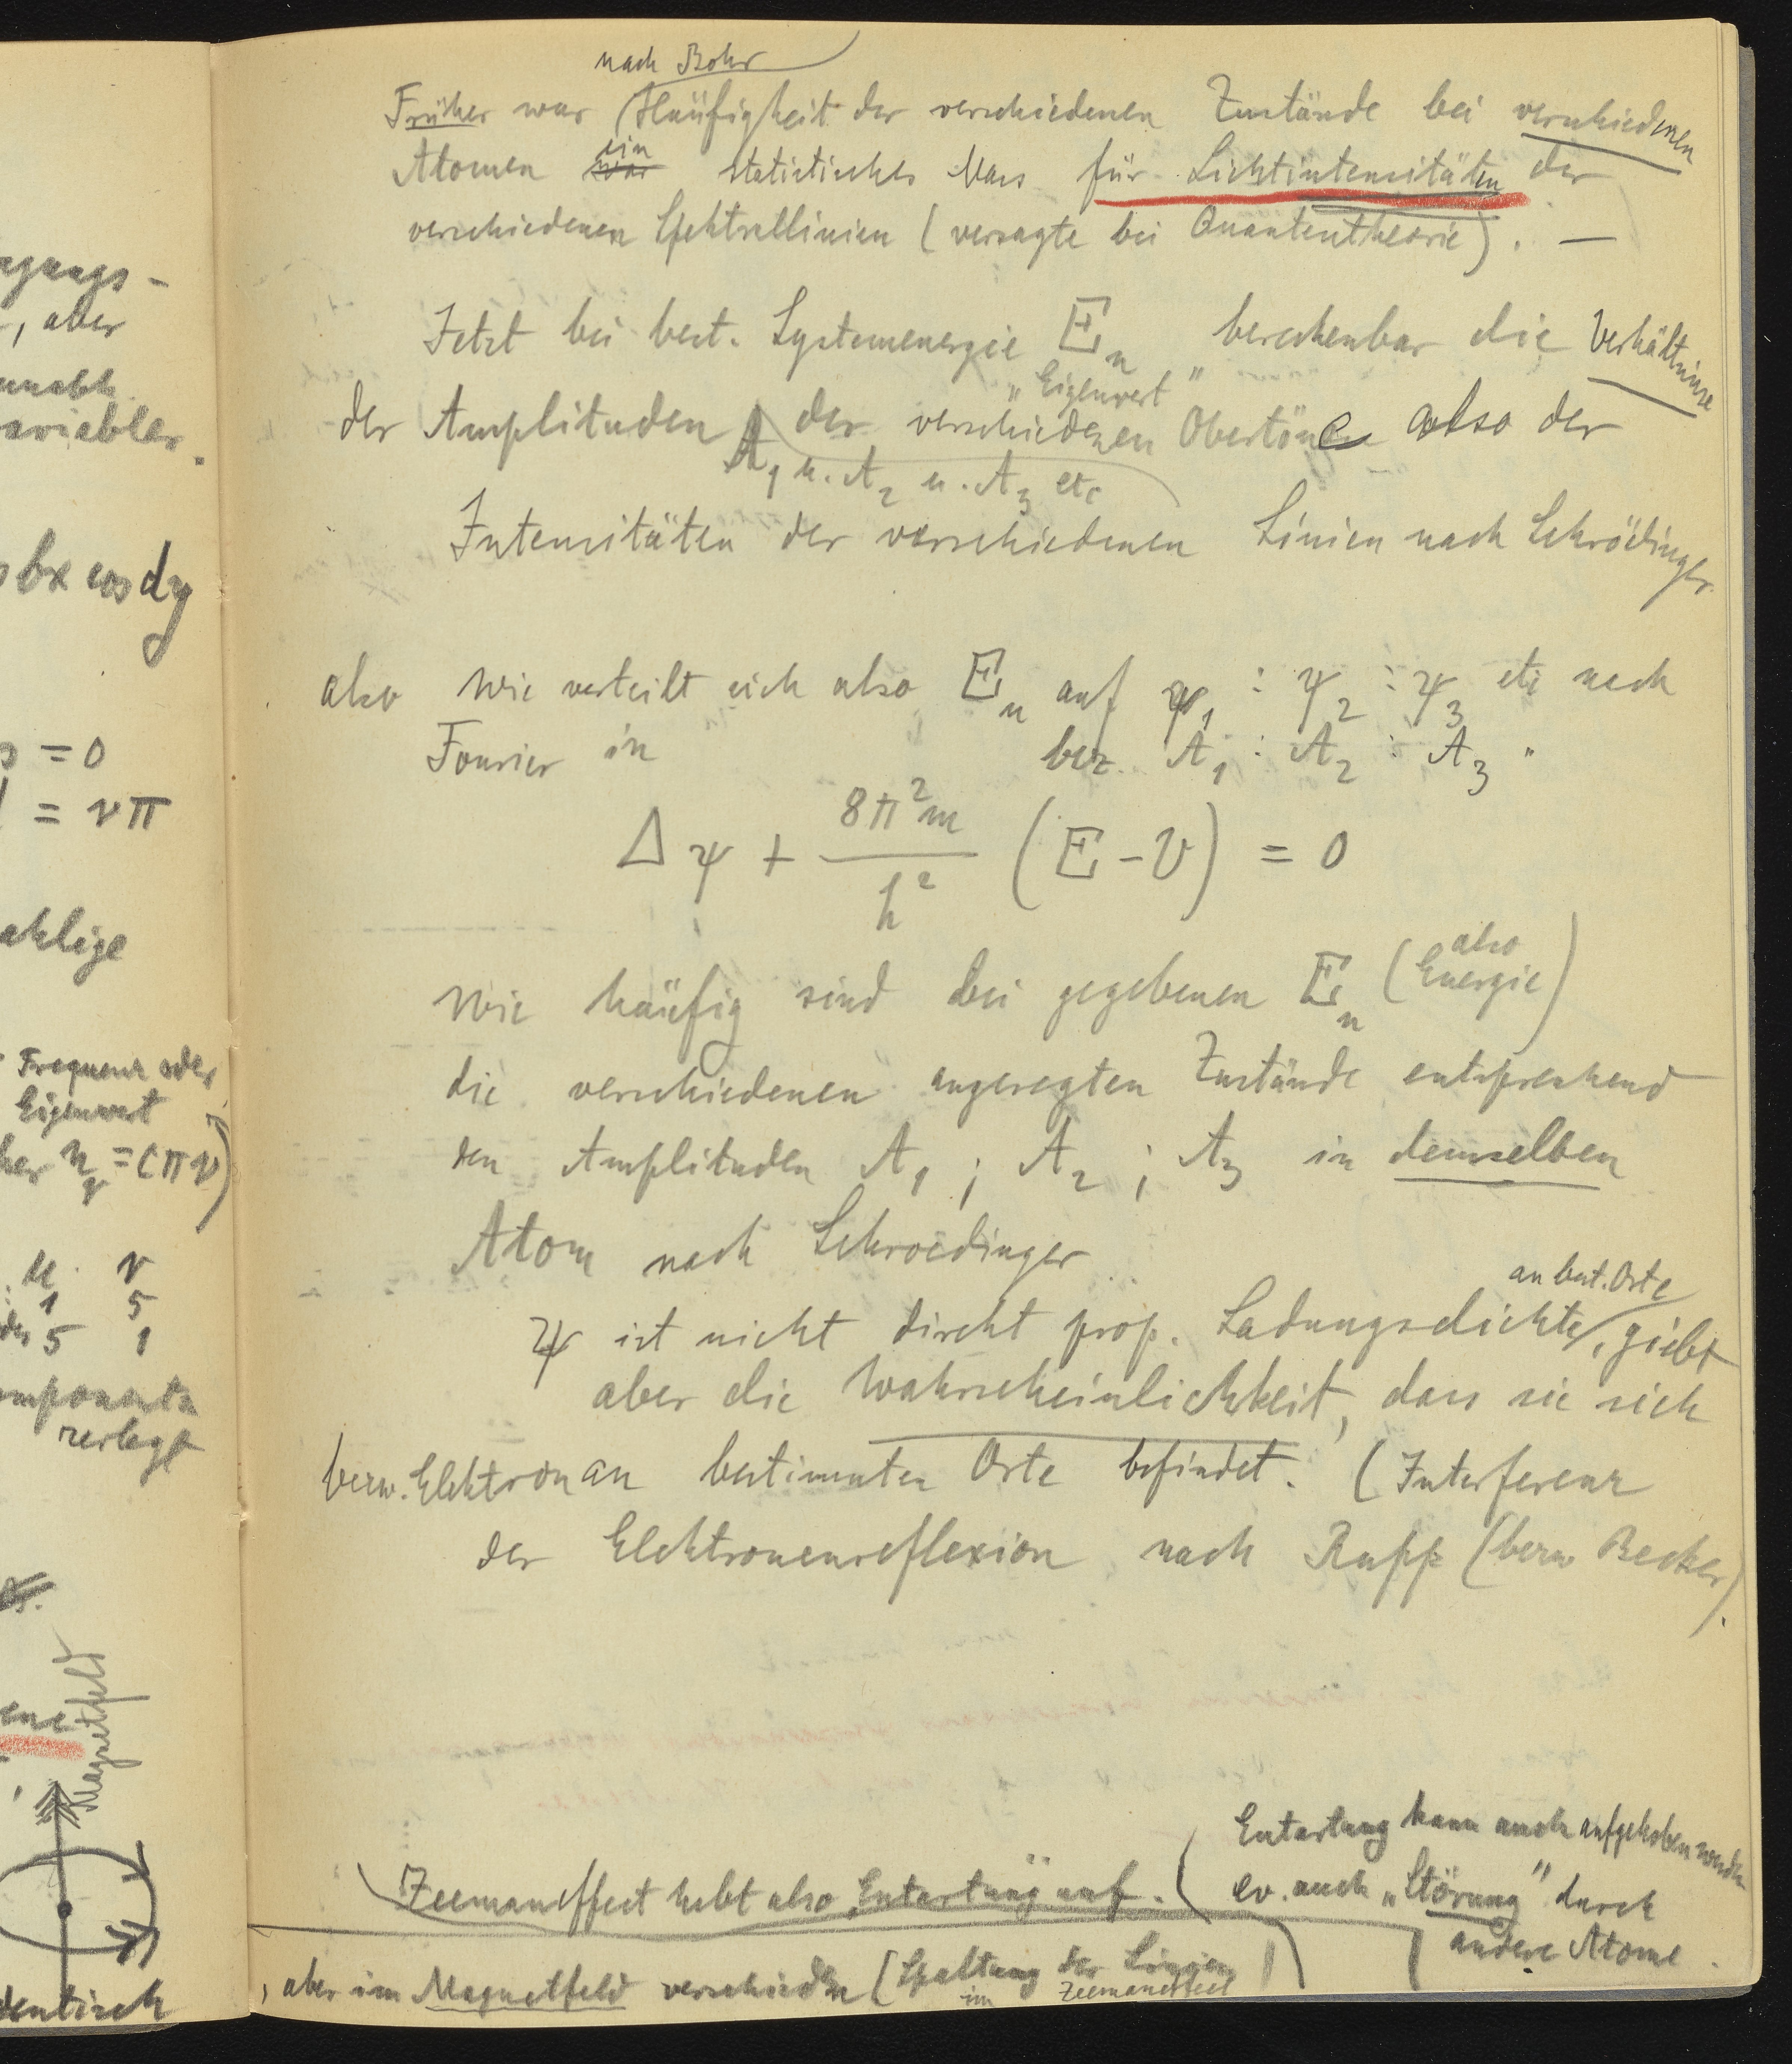 agungs -
-, aber
unabh.
variabler.
s bx cos dy
= 0
= νπ
ahlige
Frequenz oder
Eigenwert
her n_ν = (πν)
u. ν
: 1 5
5 1
omponenten
zerlegt
ene
Magnetfeld
dentisch
nach Bohr
Früher war Häufigkeit der verschiedenen Zustände bei verschiedenen
Atomen war ein statistisches Mass für Lichtintensitäten der
verschiedenen Spektrallinien (versagte bei Quantentheorie). —
Jetzt bei best. Systemenergie E_n berechenbar die Verhältnisse
"Eigenwert"
der Amplituden der verschiedenen Obertöne also der
A_1 u. A_2 u. A_3 etc
Intensitäten der verschiedenen Linien nach Schrödinger.
also wie verteilt sich also E_n auf ψ_1 : ψ_2 : ψ_3 etc nach
Fourier in bez. A_1 : A_2 : A_3 "
Δψ + 8π²m/h² (E - V) = 0
Wie häufig sind bei gegebenen E_n (also Energie)
die verschiedenen angeregten Zustände entsprechend
den Amplituden A_1 ; A_2 ; A_3 in demselben
Atom nach Schroedinger
an best. Orte
ψ ist nicht direkt prop. Ladungsdichte, giebt
aber die Wahrscheinlichkeit, dass sie sich
bezw. Elektron an bestimmten Orte befindet. (Interferenz
der Elektronenreflexion nach Rupp (bezw Becker).
Entartung kann auch aufgehoben werden
Zeemaneffect hebt also Entartung auf. (ev. auch „Störung" durch
andere Atome.
, aber im Magnetfeld verschieden (Spaltung der Linien
im Zeemaneffect